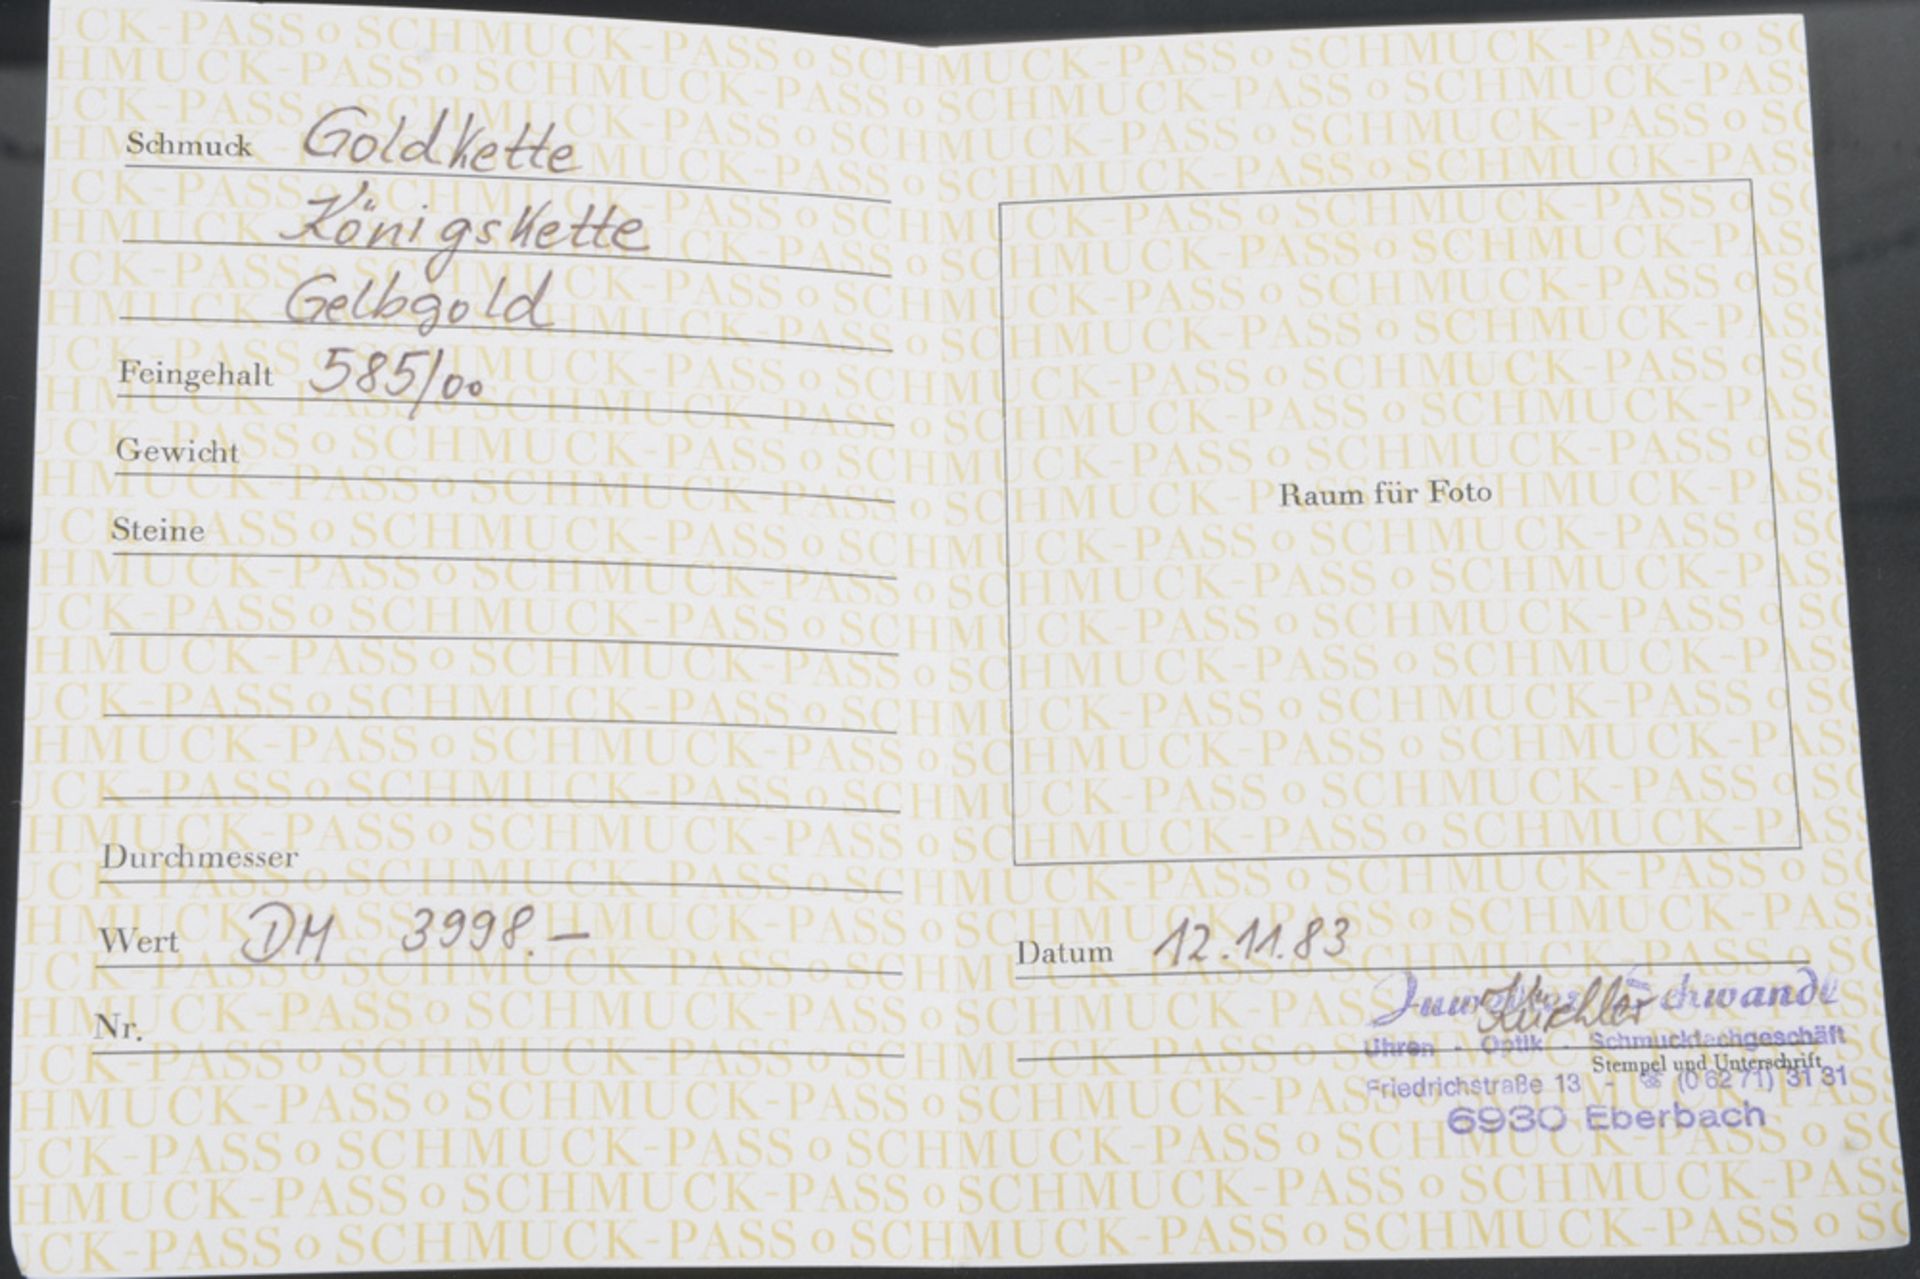 Schmuck Goldkette
Königskette
Gelbgold
Feingehalt 585/00
Gewicht
Steine
Durchmesser
Wert DM 3998.–
Nr.
Raum für Foto
Datum 12.11.83
Küchler
Uhren - Optik - Schmuckfachgeschäft
Stempel und Unterschrift
Friedrichstraße 13 - ☏ (0 62 71) 31 31
6930 Eberbach
SCHMUCK-PASS o SCHMUCK-PASS o SCHMUCK-PASS